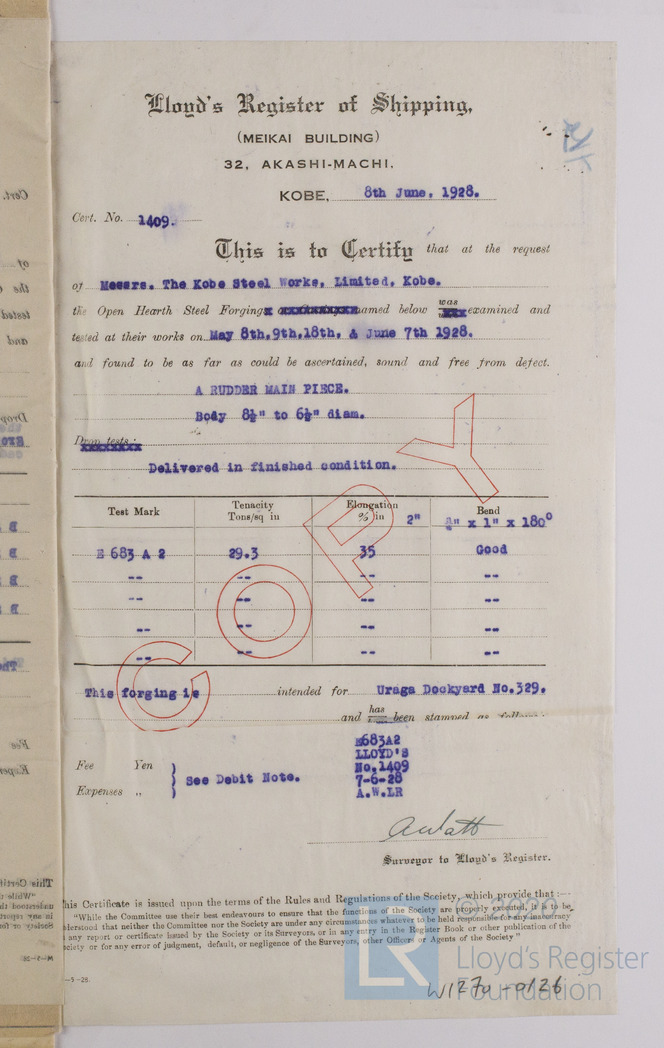 Lloyd's Register of Shipping,
(MEIKAI BUILDING)
32, AKASHI-MACHI.
KOBE, 8th June, 1928.
Cert. No. 1409.
This is to Certify that at the request
of Messrs. The Kobe Steel Works, Limited, Kobe.
the Open Hearth Steel Forging named below was examined and
tested at their works on May 8th,9th,18th, & June 7th 1928.
and found to be as far as could be ascertained, sound and free from defect.
A RUDDER MAIN PIECE.
Body 8½" to 6½" diam.
Drop tests:
Delivered in finished condition.
Test Mark Tenacity Tons/sq in Elongation % in 2" Bend " x 1" x 180°
E 683 A 2 29.3 35 Good
-- -- -- --
-- -- -- --
-- -- -- --
-- -- -- --
COPY
This forging is intended for Uraga Dockyard No.329.
and has been stamped as follows:
E683A2
LLOYD'S
No.1409
7-6-28
A.W.LR
Fee Yen
Expenses „
See Debit Note.
A Watt
Surveyor to Lloyd's Register.
his Certificate is issued upon the terms of the Rules and Regulations of the Society, which provide that :—
"While the Committee use their best endeavours to ensure that the functions of the Society are properly executed, it is to be
derstood that neither the Committee nor the Society are under any circumstances whatever to be held responsible for any inaccuracy
any report or certificate issued by the Society or its Surveyors, or in any entry in the Register Book or other publication of the
ociety or for any error of judgment, default, or negligence of the Surveyors, other Officers or Agents of the Society"
—5-28.
© 2020
LR
Lloyd's Register
Foundation
W1270-0126